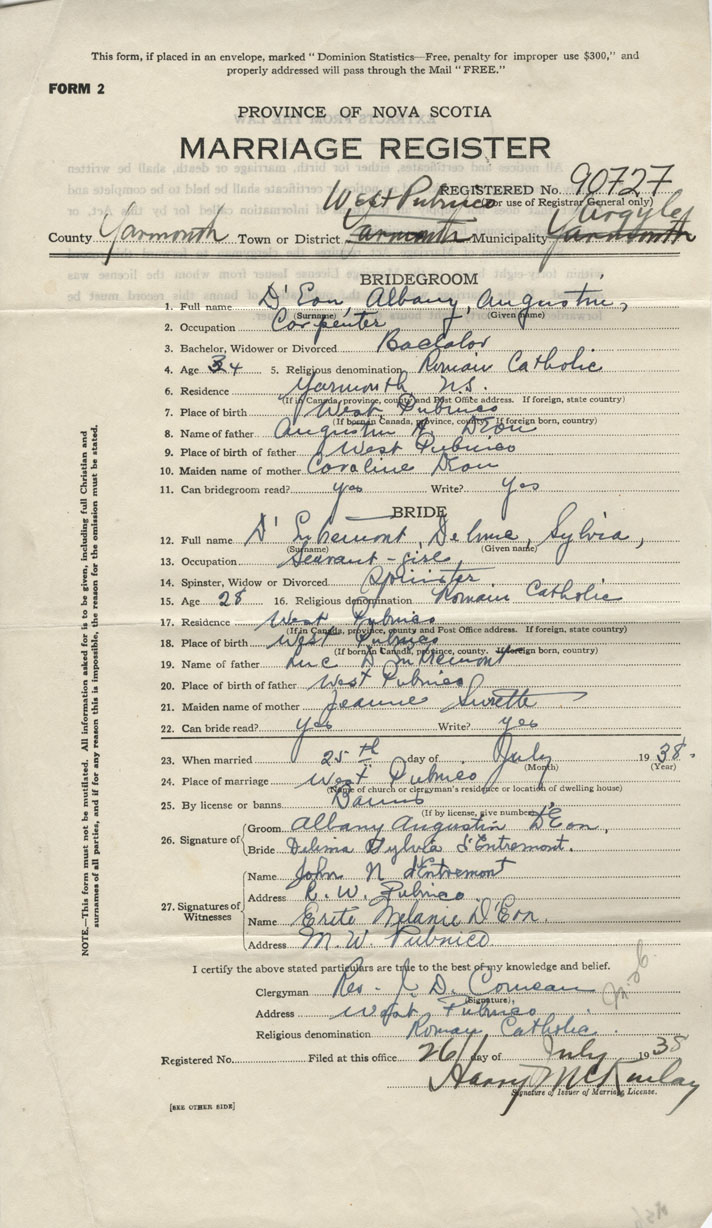 This form, if placed in an envelope, marked "Dominion Statistics—Free, penalty for improper use $300," and
properly addressed will pass through the Mail "FREE."
FORM 2
PROVINCE OF NOVA SCOTIA
MARRIAGE REGISTER
REGISTERED No. 90727
(For use of Registrar General only)
West Pubnico Argyle
County Yarmouth Town or District Yarmouth Municipality Yarmouth
BRIDEGROOM
1. Full name D'Eon, Albany, Augustin,
(Surname) (Given name)
2. Occupation Carpenter
3. Bachelor, Widower or Divorced Bachelor
4. Age 34 5. Religious denomination Roman Catholic
6. Residence Yarmouth N.S.
(If in Canada, province, county and Post Office address. If foreign, state country)
7. Place of birth West Pubnico
(If born in Canada, province, county. If foreign born, country)
8. Name of father Augustin H. D'Eon
9. Place of birth of father West Pubnico
10. Maiden name of mother Caroline D'Eon
11. Can bridegroom read? yes Write? yes
BRIDE
12. Full name D'Entremont, Delima, Sylvia,
(Surname) (Given name)
13. Occupation Servant-girl
14. Spinster, Widow or Divorced Spinster
15. Age 28 16. Religious denomination Romain Catholic
17. Residence West Pubnico
(If in Canada, province, county and Post Office address. If foreign, state country)
18. Place of birth West Pubnico
(If born in Canada, province, county. If foreign born, country)
19. Name of father Luc D'Entremont
20. Place of birth of father West Pubnico
21. Maiden name of mother Jeanne Surette
22. Can bride read? yes Write? yes
23. When married 25th day of July 1938.
(Month) (Year)
24. Place of marriage West Pubnico
(Name of church or clergyman's residence or location of dwelling house)
25. By license or banns Banns
(If by license, give number)
26. Signature of Groom Albany Augustin D'Eon,
Bride Delima Sylvia d'Entremont.
27. Signatures of Witnesses
Name John N d'Entremont
Address R. W. Pubnico
Name Erite Melanie D'Eon.
Address M. W. Pubnico.
I certify the above stated particulars are true to the best of my knowledge and belief.
Clergyman Rev. J. D. Comeau
(Signature)
Address West Pubnico
Religious denomination Roman Catholic.
Registered No. Filed at this office 26 day of July 1938
Harry McKinlay
Signature of Issuer of Marriage License.
[SEE OTHER SIDE]
NOTE.—This form must not be mutilated. All information asked for is to be given, including full Christian and
surnames of all parties, and if for any reason this is impossible, the reason for the omission must be stated.